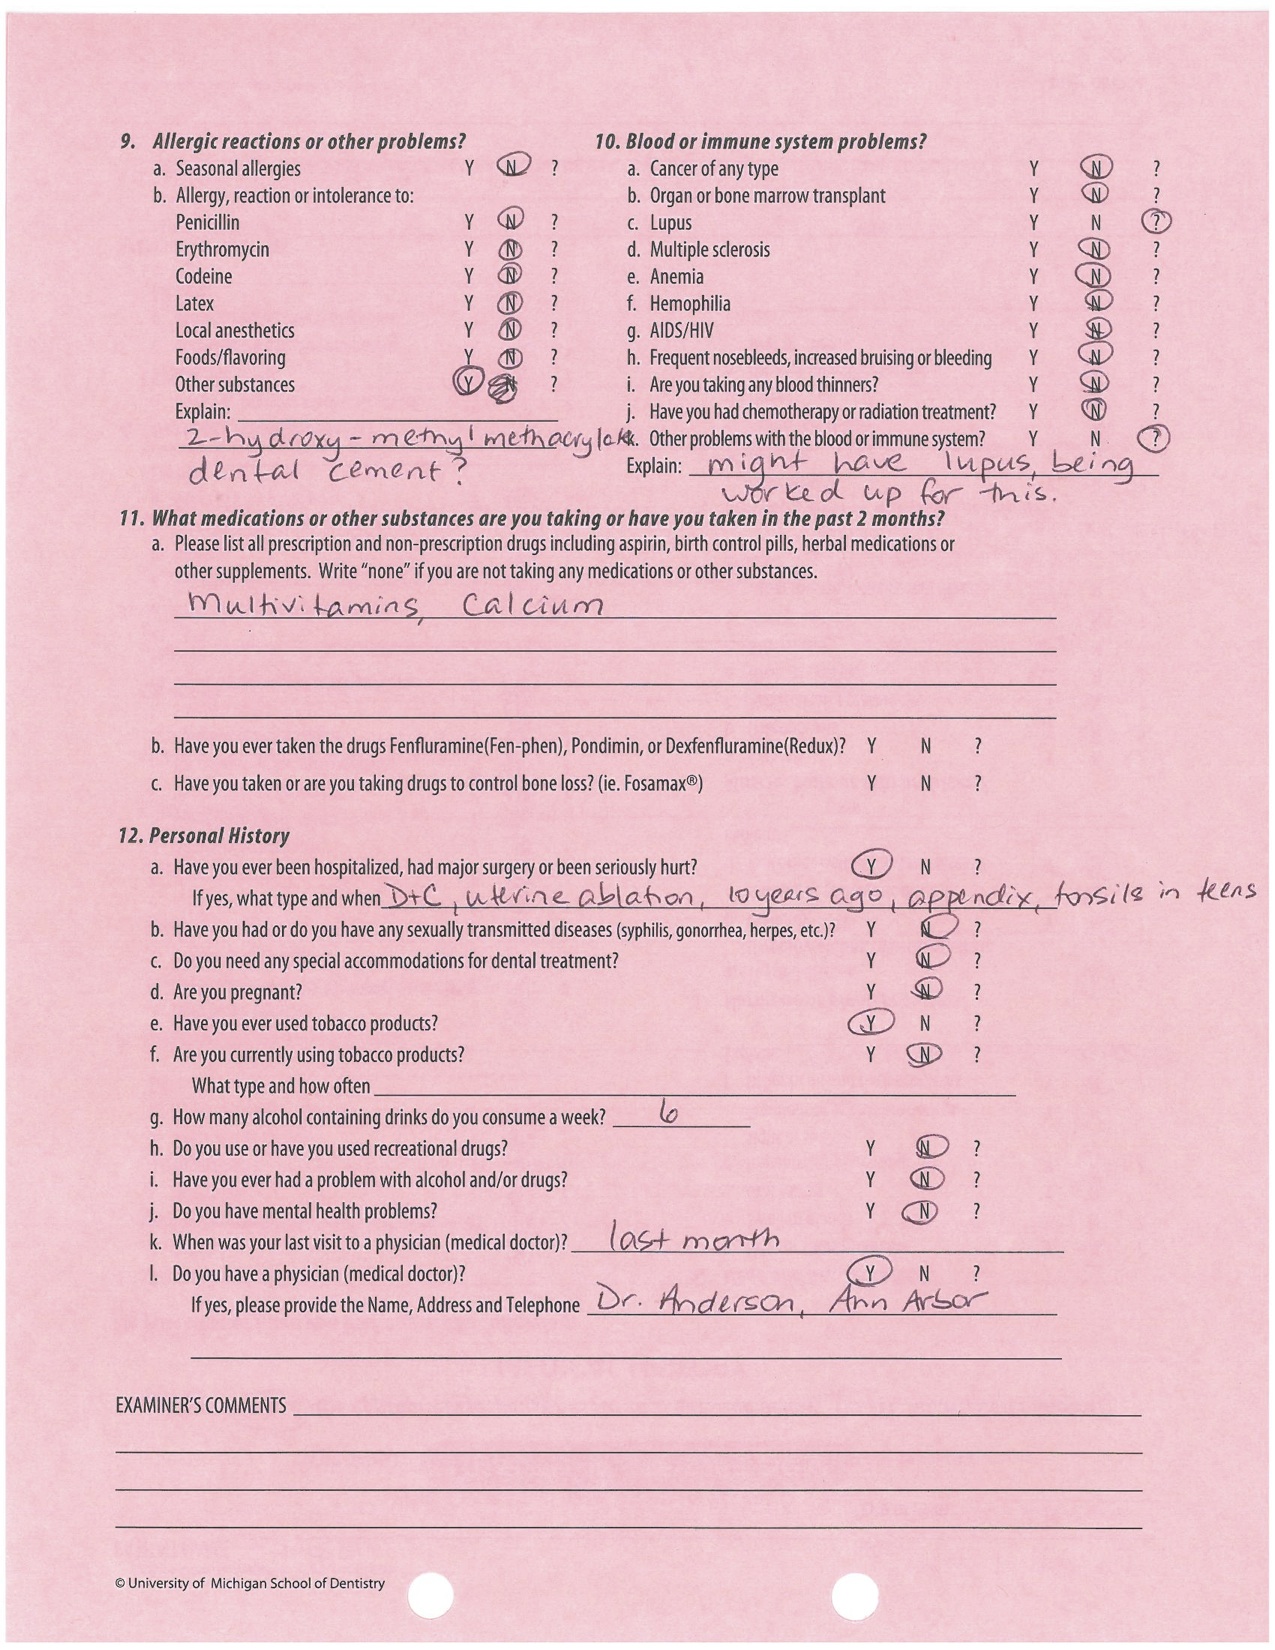 9. Allergic reactions or other problems?
a. Seasonal allergies Y N ?
b. Allergy, reaction or intolerance to:
Penicillin Y N ?
Erythromycin Y N ?
Codeine Y N ?
Latex Y N ?
Local anesthetics Y N ?
Foods/flavoring Y N ?
Other substances Y N ?
Explain:
2-hydroxy-methyl methacrylate
dental cement?
10. Blood or immune system problems?
a. Cancer of any type Y N ?
b. Organ or bone marrow transplant Y N ?
c. Lupus Y N ?
d. Multiple sclerosis Y N ?
e. Anemia Y N ?
f. Hemophilia Y N ?
g. AIDS/HIV Y N ?
h. Frequent nosebleeds, increased bruising or bleeding Y N ?
i. Are you taking any blood thinners? Y N ?
j. Have you had chemotherapy or radiation treatment? Y N ?
k. Other problems with the blood or immune system? Y N ?
Explain: might have lupus, being
worked up for this.
11. What medications or other substances are you taking or have you taken in the past 2 months?
a. Please list all prescription and non-prescription drugs including aspirin, birth control pills, herbal medications or
other supplements. Write "none" if you are not taking any medications or other substances.
Multivitamins, Calcium
b. Have you ever taken the drugs Fenfluramine(Fen-phen), Pondimin, or Dexfenfluramine(Redux)? Y N ?
c. Have you taken or are you taking drugs to control bone loss? (ie. Fosamax®) Y N ?
12. Personal History
a. Have you ever been hospitalized, had major surgery or been seriously hurt? Y N ?
If yes, what type and when D+C, uterine ablation, 10 years ago, appendix, tonsils in teens
b. Have you had or do you have any sexually transmitted diseases (syphilis, gonorrhea, herpes, etc.)? Y N ?
c. Do you need any special accommodations for dental treatment? Y N ?
d. Are you pregnant? Y N ?
e. Have you ever used tobacco products? Y N ?
f. Are you currently using tobacco products? Y N ?
What type and how often
g. How many alcohol containing drinks do you consume a week? 6
h. Do you use or have you used recreational drugs? Y N ?
i. Have you ever had a problem with alcohol and/or drugs? Y N ?
j. Do you have mental health problems? Y N ?
k. When was your last visit to a physician (medical doctor)? last month
l. Do you have a physician (medical doctor)? Y N ?
If yes, please provide the Name, Address and Telephone Dr. Anderson, Ann Arbor
EXAMINER'S COMMENTS
© University of Michigan School of Dentistry